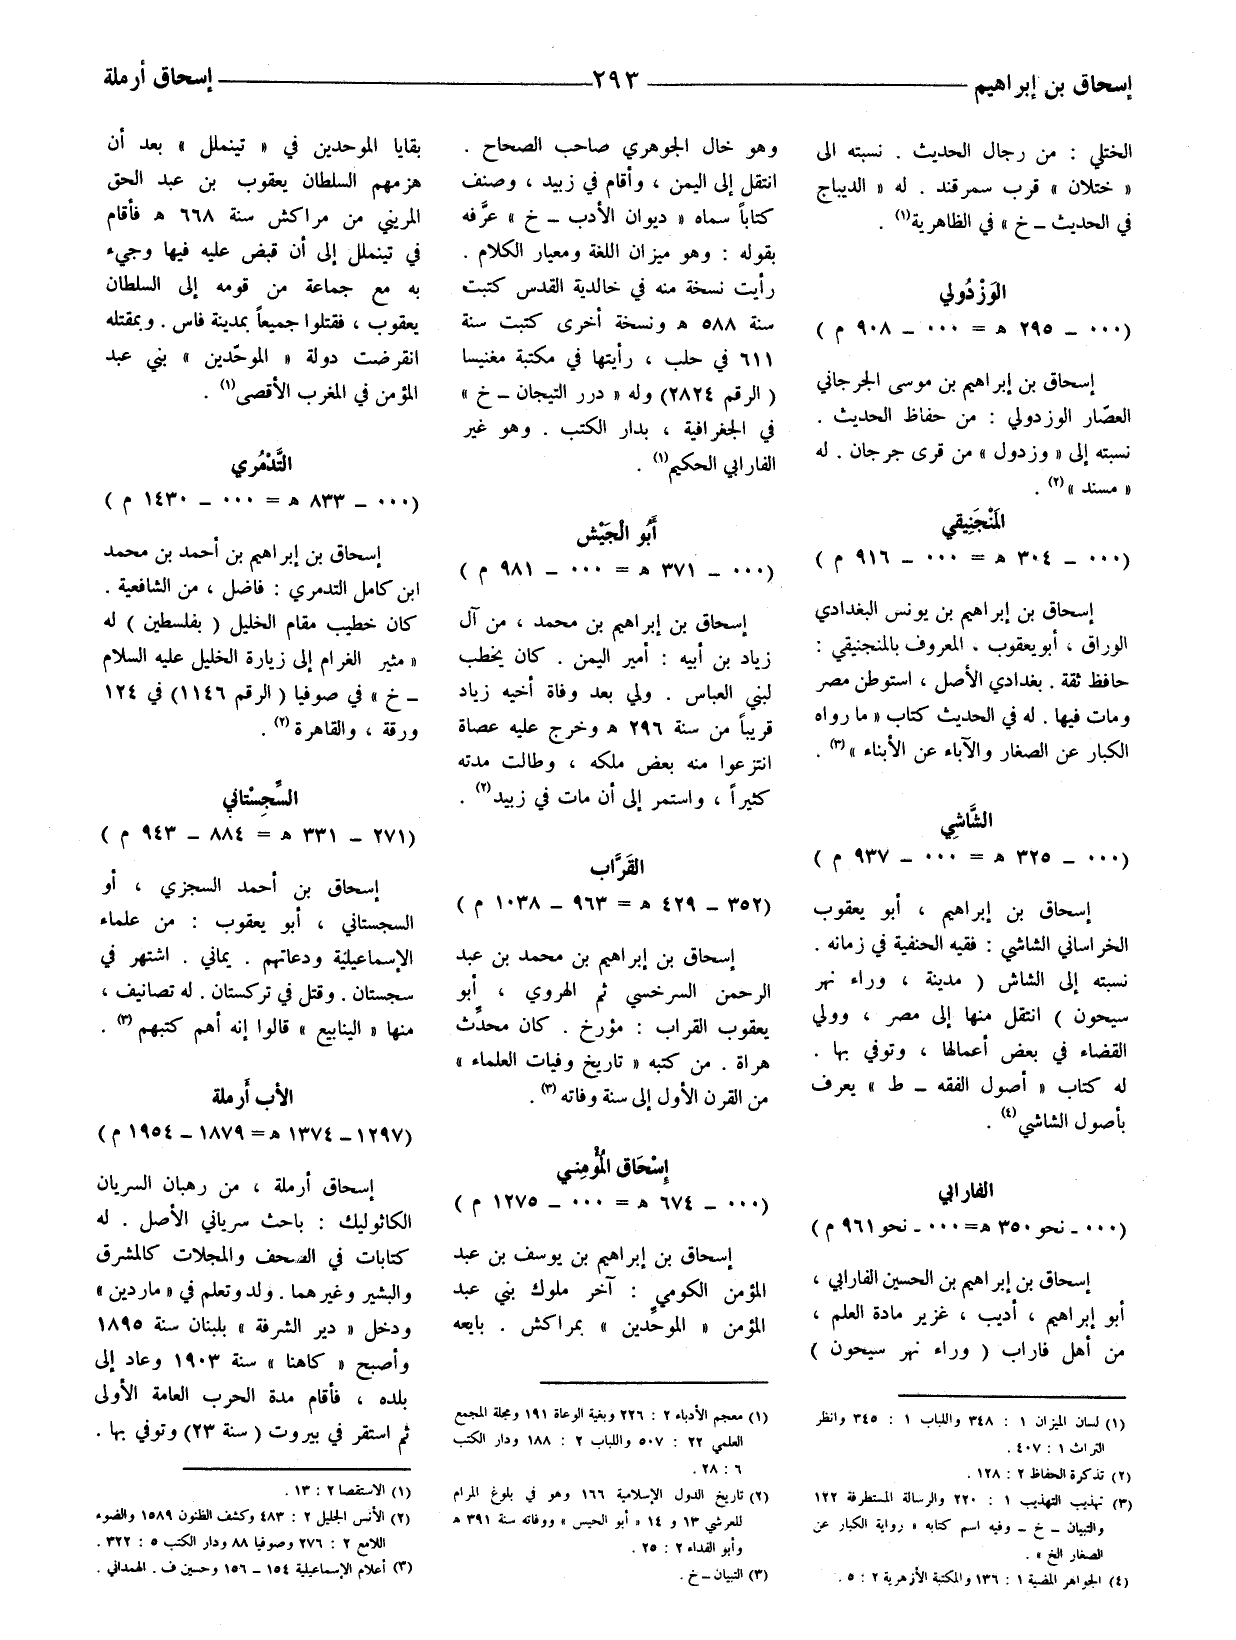 إسحاق بن إبراهيم ٢٩٣ إسحاق أرملة
الختلي : من رجال الحديث . نسبته الى
« ختلان » قرب سمرقند . له « الديباج
في الحديث ـ خ » في الظاهرية(١) .
الوَزْدُولي
(٠٠٠ ـ ٢٩٥ ه = ٠٠٠ ـ ٩٠٨ م )
إسحاق بن إبراهيم بن موسى الجرجاني
العصّار الوزدولي : من حفاظ الحديث .
نسبته إلى « وزدول » من قرى جرجان . له
« مسند »(٢) .
المَنْجَنِيقي
(٠٠٠ ـ ٣٠٤ ه = ٠٠٠ ـ ٩١٦ م )
إسحاق بن إبراهيم بن يونس البغدادي
الوراق ، أبو يعقوب ، المعروف بالمنجنيقي :
حافظ ثقة . بغدادي الأصل ، استوطن مصر
ومات فيها . له في الحديث كتاب « ما رواه
الكبار عن الصغار والآباء عن الأبناء »(٣) .
الشَّاشِي
(٠٠٠ ـ ٣٢٥ ه = ٠٠٠ ـ ٩٣٧ م )
إسحاق بن إبراهيم ، أبو يعقوب
الخراساني الشاشي : فقيه الحنفية في زمانه .
نسبته إلى الشاش ( مدينة ، وراء نهر
سيحون ) انتقل منها إلى مصر ، وولي
القضاء في بعض أعمالها ، وتوفي بها .
له كتاب « أصول الفقه ـ ط » يعرف
بأصول الشاشي(٤) .
الفارابي
(٠٠٠ ـ نحو ٣٥٠ ه=٠٠٠ ـ نحو ٩٦١ م )
إسحاق بن إبراهيم بن الحسين الفارابي ،
أبو إبراهيم ، أديب ، غزير مادة العلم ،
من أهل فاراب ( وراء نهر سيحون )
(١) لسان الميزان ١ : ٣٤٨ واللباب ١ : ٣٤٥ وانظر
التراث ١ : ٤٠٧ .
(٢) تذكرة الحفاظ ٢ : ١٢٨ .
(٣) تهذيب التهذيب ١ : ٢٢٠ والرسالة المستطرفة ١٢٢
والتبيان ـ خ ـ وفيه اسم كتابه « رواية الكبار عن
الصغار الخ » .
(٤) الجواهر المضية ١ : ١٣٦ والمكتبة الأزهرية ٢ : ٥ .
وهو خال الجوهري صاحب الصحاح .
انتقل إلى اليمن ، وأقام في زبيد ، وصنف
كتاباً سماه « ديوان الأدب ـ خ » عرَّفه
بقوله : وهو ميزان اللغة ومعيار الكلام .
رأيت نسخة منه في خالدية القدس كتبت
سنة ٥٨٨ ه ونسخة أخرى كتبت سنة
٦١١ في حلب ، رأيتها في مكتبة مغنيسا
( الرقم ٢٨٢٤) وله « درر التيجان ـ خ »
في الجغرافية ، بدار الكتب . وهو غير
الفارابي الحكيم(١) .
أَبُو الْجَيْش
(٠٠٠ ـ ٣٧١ ه = ٠٠٠ ـ ٩٨١ م )
إسحاق بن إبراهيم بن محمد ، من آل
زياد بن أبيه : أمير اليمن . كان يخطب
لبني العباس . ولي بعد وفاة أخيه زياد
قريباً من سنة ٢٩٦ ه وخرج عليه عصاة
انتزعوا منه بعض ملكه ، وطالت مدته
كثيراً ، واستمر إلى أن مات في زبيد(٢) .
القَرَّاب
(٣٥٢ ـ ٤٢٩ ه = ٩٦٣ ـ ١٠٣٨ م )
إسحاق بن إبراهيم بن محمد بن عبد
الرحمن السرخسي ثم الهروي ، أبو
يعقوب القراب : مؤرخ . كان محدّث
هراة . من كتبه « تاريخ وفيات العلماء »
من القرن الأول إلى سنة وفاته(٣) .
إِسْحَاق المُؤْمِني
(٠٠٠ ـ ٦٧٤ ه = ٠٠٠ ـ ١٢٧٥ م )
إسحاق بن إبراهيم بن يوسف بن عبد
المؤمن الكومي : آخر ملوك بني عبد
المؤمن « الموحّدين » بمراكش . بايعه
(١) معجم الأدباء ٢ : ٢٢٦ وبغية الوعاة ١٩١ ومجلة المجمع
العلمي ٢٢ : ٥٠٧ واللباب ٢ : ١٨٨ ودار الكتب
٦ : ٢٨ .
(٢) تاريخ الدول الإسلامية ١٦٦ وهو في بلوغ المرام
للعرشي ١٣ و ١٤ « أبو الحيس » ووفاته سنة ٣٩١ ه
وأبو الفداء ٢ : ٢٥ .
(٣) التبيان ـ خ .
بقايا الموحدين في « تينملل » بعد أن
هزمهم السلطان يعقوب بن عبد الحق
المريني من مراكش سنة ٦٦٨ ه فأقام
في تينملل إلى أن قبض عليه فيها وجيء
به مع جماعة من قومه إلى السلطان
يعقوب ، فقتلوا جميعاً بمدينة فاس . وبمقتله
انقرضت دولة « الموحّدين » بني عبد
المؤمن في المغرب الأقصى(١) .
التَّدْمُري
(٠٠٠ ـ ٨٣٣ ه = ٠٠٠ ـ ١٤٣٠ م )
إسحاق بن إبراهيم بن أحمد بن محمد
ابن كامل التدمري : فاضل ، من الشافعية .
كان خطيب مقام الخليل ( بفلسطين ) له
« مثير الغرام إلى زيارة الخليل عليه السلام
ـ خ » في صوفيا ( الرقم ١١٤٦) في ١٢٤
ورقة ، والقاهرة(٢) .
السِّجِسْتاني
(٢٧١ ـ ٣٣١ ه = ٨٨٤ ـ ٩٤٣ م )
إسحاق بن أحمد السجزي ، أو
السجستاني ، أبو يعقوب : من علماء
الإسماعيلية ودعاتهم . يماني . اشتهر في
سجستان . وقتل في تركستان . له تصانيف ،
منها « الينابيع » قالوا إنه أهم كتبهم(٣) .
الأب أَرملة
(١٢٩٧ـ ١٣٧٤ ه= ١٨٧٩ ـ ١٩٥٤ م )
إسحاق أرملة ، من رهبان السريان
الكاثوليك : باحث سرياني الأصل . له
كتابات في الصحف والمجلات كالمشرق
والبشير وغيرهما . ولد وتعلم في « ماردين »
ودخل « دير الشرفة » بلبنان سنة ١٨٩٥
وأصبح « كاهنا » سنة ١٩٠٣ وعاد إلى
بلده ، فأقام مدة الحرب العامة الأولى
ثم استقر في بيروت ( سنة ٢٣) وتوفي بها .
(١) الاستقصا ٢ : ١٣ .
(٢) الأنس الجليل ٢ : ٤٨٣ وكشف الظنون ١٥٨٩ والضوء
اللامع ٢ : ٢٧٦ وصوفيا ٨٨ ودار الكتب ٥ : ٣٢٢ .
(٣) أعلام الإسماعيلية ١٥٤ ـ ١٥٦ وحسين ف . الهمداني .